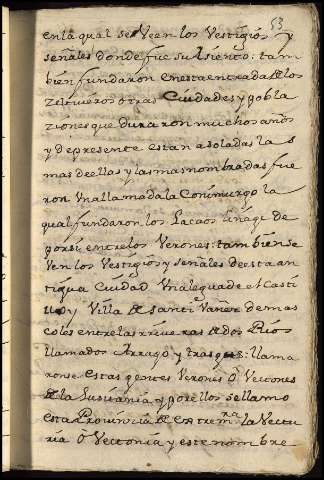 53
en la qual se Veen los Vestigios y
señales donde fue su Asiento: tam
bien fundaron en esta entrada los
zeltiveros otras Ciudades y pobla
ziones que duraron muchos años
y de presente estan asoladas las
mas de ellas y las mas nombradas fue
ron Vna llamada la Conimurgo la
qual fundaron los Linage de
por si entre los Verones: tambien se
Ven los Vestigios y señales de esta an
tigua Ciudad Vna legua de el Casti
llo y Villa de Santi Vañez de mas
coles entre las rriveras de dos Rios
llamados Arrago y trasga: llama
ronse estas gentes Verones ò Vectones
de la Lusitania y por ellos se llamo
esta Provincia de Extremra. la Vectu
ria ò Vectonia y este nombre